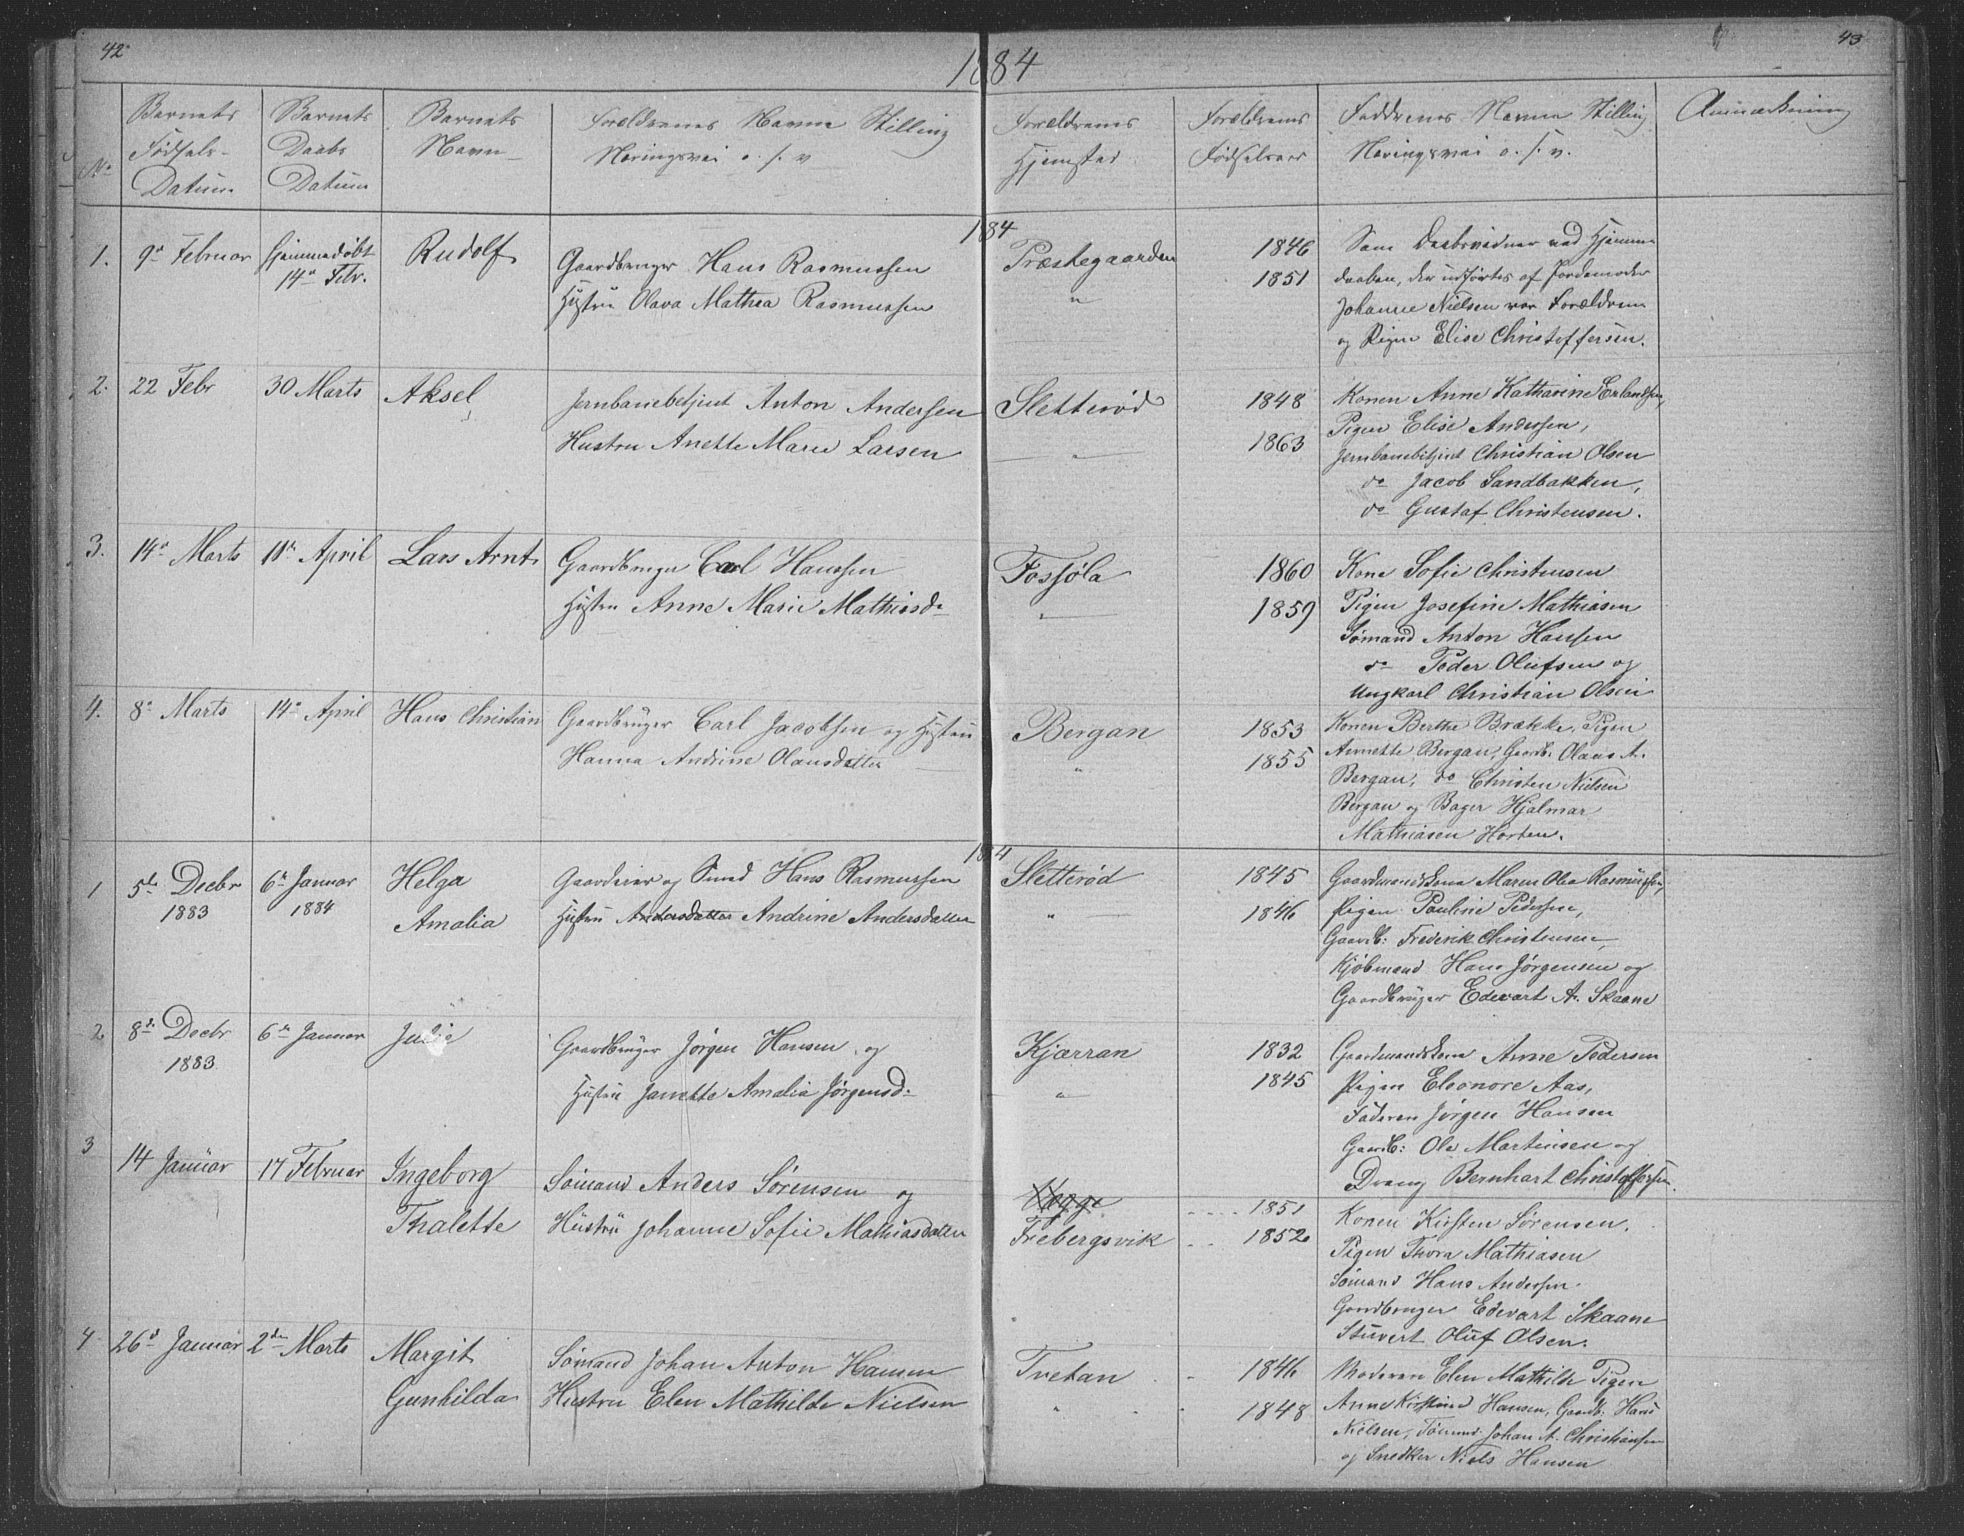 42
43
1884
No
Barnets Fødsels- Datum
Barnets Daabs Datum
Barnets Navn
Forældrenes Navne Stilling
Næringsvei o. s. v
Forældrenes Hjemsted
Forældrenes Fødselsaar
Faddrenes Navne Stilling
Næringsvei o. s. v.
Anmærkning
1884
1.
9de Februar
Hjemmedøbt
14de Febr.
Rudolf
Gaardbruger Hans Rasmussen
Hustru Olava Mathea Rasmussen
Præstegaarden
"
1846
1851
Som Daabsvidner ved Hjemme-
daaben, der udførtes af Jordemoder
Johanne Nielsen var Forældrene
og Pigen Elise Christoffersen.
2.
22 Febr
30 Marts
Aksel
Jernbanebetjent Anton Andersen
Hustru Anette Marie Larsen
Sletterød
"
1848
1863
Konen Anne Katharine Erlandsen,
Pigen Elise Andersen,
Jernbanebetjent Christian Olsen
do Jacob Sandbakken,
do Gustaf Christensen.
3.
14de Marts
April
Lars Arnt
Gaardbruger Carl Hanssen
Hustru Anne Marie Mathiasd.
Fossjøla
"
1860
1859
Kone Sofie Christensen
Pigen Josefine Mathiasen
Sømand Anton Hansen
do Peder Olufsen og
Ungkarl Christian Olsen
4.
8de Marts
14de April
Hans Christian
Gaardbrüger Carl Jacobsen og Hustru
Hanna Andrine Olausdatter
Bergan
"
1853
1855
Konen Berthe Brække, Pigen
Annette Bergan, Gaardb. Olaus A.
Bergan, do Christen Nielsen
Bergan og Bager Hjalmar
Mathiasen Horten.
1884
1
5te Decbr
1883
6te Januar
1884
Helga
Amalia
Gaardeier og Smed Hans Rasmussen
Hustru Andersdatter Andrine Andersdatter
Sletterød
"
1845
1846
Gaardmandskone Maren Olea Rasmussen,
Pigen Pauline Pedersen,
Gaardb: Frederik Christensen,
Kjøbmand Hans Jørgensen og
Gaardbrüger Edevart A. Skaane
2
8de Decbr
1883
6te Januar
Julie
Gaardbrüger Jørgen Hansen og
Hustru Janette Amalia Jørgensd:
Kjærran
"
1832
1845
Gaardmandskone Anne Pedersen
Pigen Eleonore Aas,
Faderen Jørgen Hansen
Gaardb: Ole Martinsen og
Dreng Bernhart Christoffersen.
3
14 Januar
17 Februar
Ingeborg
Thalette
Sømand Anders Sørensen og
Hustrü Johanne Sofie Mathiasdatter
Frebergsvik
1851
1852
Konen Kirsten Sørensen,
Pigen Thora Mathiasen
Sømand Hans Andersen
Gaardbruger Edevart Skaane
Stuvert Oluf Olsen.
4
26de Januar
2den Marts
Margit
Gunhilda
Sømand Johan Anton Hansen
Hustru Elen Mathilde Nielsen
Tvetan
"
1846
1848
Moderen Elen Mathilde Pigen
Anne Kirstine Hansen, Gaardb. Hans
Nielsen, Tømmd Johan A. Christiansen
og Snedker Niels Hansen